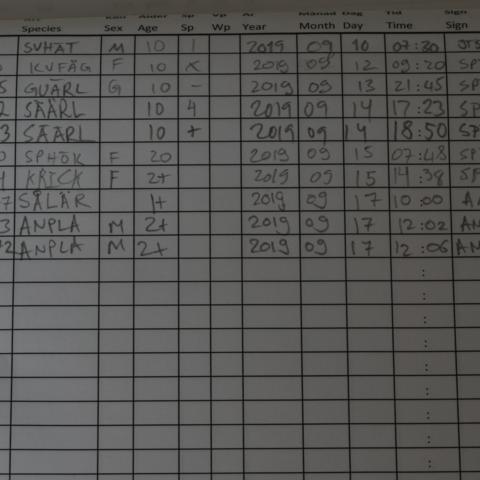 Species Sex Age Sp Wp Year Month Day Time Sign
SVHAT M 10 1 2019 09 10 07:30
KVFÄG F 10 2019 09 12 09:20 SP
GUÄRL G 10 - 2019 09 13 21:45 SP
SÄÄRL 10 4 2019 09 14 17:23 SP
3 SÄÄRL 10 + 2019 09 14 18:50 SP
SPHÖK F 20 2019 09 15 07:48 SP
KRICK F 2+ 2019 09 15 14:38 SP
7 SÅLÄR 1+ 2019 09 17 10:00 A
3 ANPLA M 2+ 2019 09 17 12:02 AN
2 ANPLA M 2+ 2019 09 17 12:06 AN
:
:
:
:
:
:
:
:
: